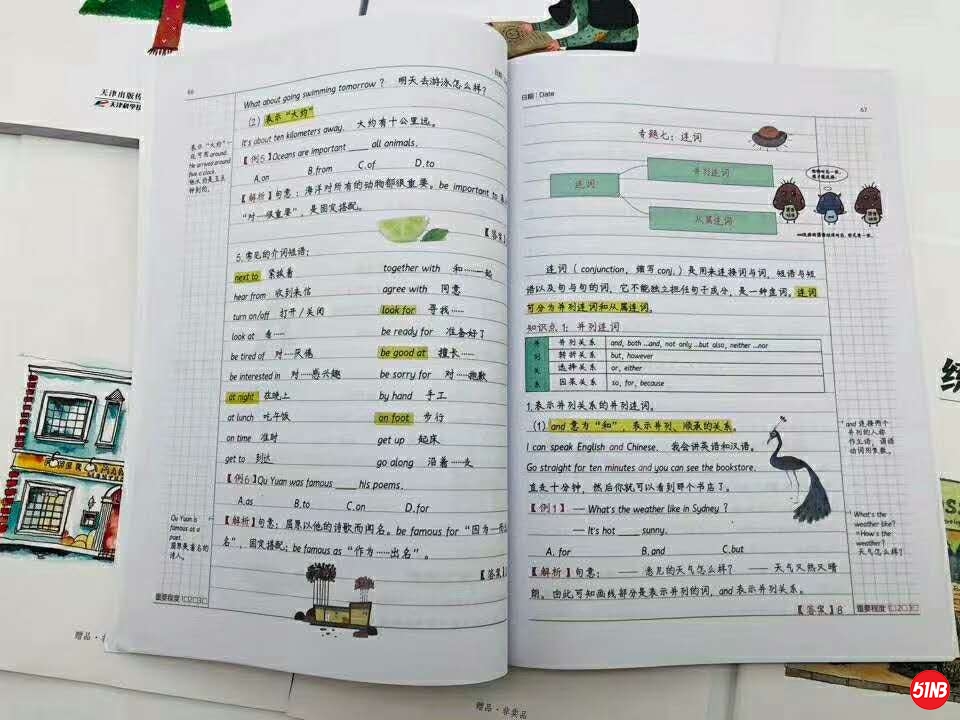 天津出版传
天津科学技
66
What about going swimming tomorrow？ 明天去游泳怎么样？
（2）表示“大约”
It's about ten kilometers away. 大约有十公里远。
【例5】Oceans are important ____ all animals.
A.on B.from C.of D.to
【解析】句意：海洋对所有的动物都很重要。be important to
“对…很重要”，是固定搭配。
【答案】
表示“大约”
还可用around.
He arrived around
five o'clock.
他大约是五点
钟到的。
5.常见的介词短语：
next to 紧挨着
hear from 收到来信
turn on/off 打开/关闭
look at 看……
be tired of 对……厌倦
be interested in 对……感兴趣
at night 在晚上
at lunch 吃午饭
on time 准时
get to 到达
together with 和……一起
agree with 同意
look for 寻找……
be ready for 准备好了
be good at 擅长……
be sorry for 对……抱歉
by hand 手工
on foot 步行
get up 起床
go along 沿着……走
【例6】Qu Yuan was famous ____ his poems.
A.as B.to C.on D.for
【解析】句意：屈原以他的诗歌而闻名。be famous for“因为…而
名”，固定搭配；be famous as“作为……出名”。
【答案】
Qu Yuan is
famous as a
poet.
屈原是著名的
诗人
重要程度 1 2 3
赠品·非
日期 Date
67
专题七：连词
连词
并列连词
从属连词
连词（conjunction，缩写conj.）是用来连接词与词，短语与短
语以及句与句的词，它不能独立担任句子成分，是一种虚词。连词
可分为并列连词和从属连词。
知识点1：并列连词
并列关系
并列关系 and, both …and, not only …but also, neither …nor
转折关系 but, however
选择关系 or, either
因果关系 so, for, because
1.表示并列关系的并列连词。
（1）and 意为“和”，表示并列、顺承的关系。
I can speak English and Chinese. 我会讲英语和汉语。
Go straight for ten minutes and you can see the bookstore.
直走十分钟，然后你就可以看到那个书店了。
【例1】— What's the weather like in Sydney？
— It's hot ____ sunny.
A. for B.and C.but
【解析】句意：—— 悉尼的天气怎么样？ —— 天气又热又晴
朗。由此可知画线部分是表示并列的词，and表示并列关系。
【答案】B
and 连接两个
并列的人称
作主语，谓语
动词用复数。
What's the
weather like?
=How's the
weather?
天气怎么样？
重要程度 1 2 3
赠品·非卖品
51NB